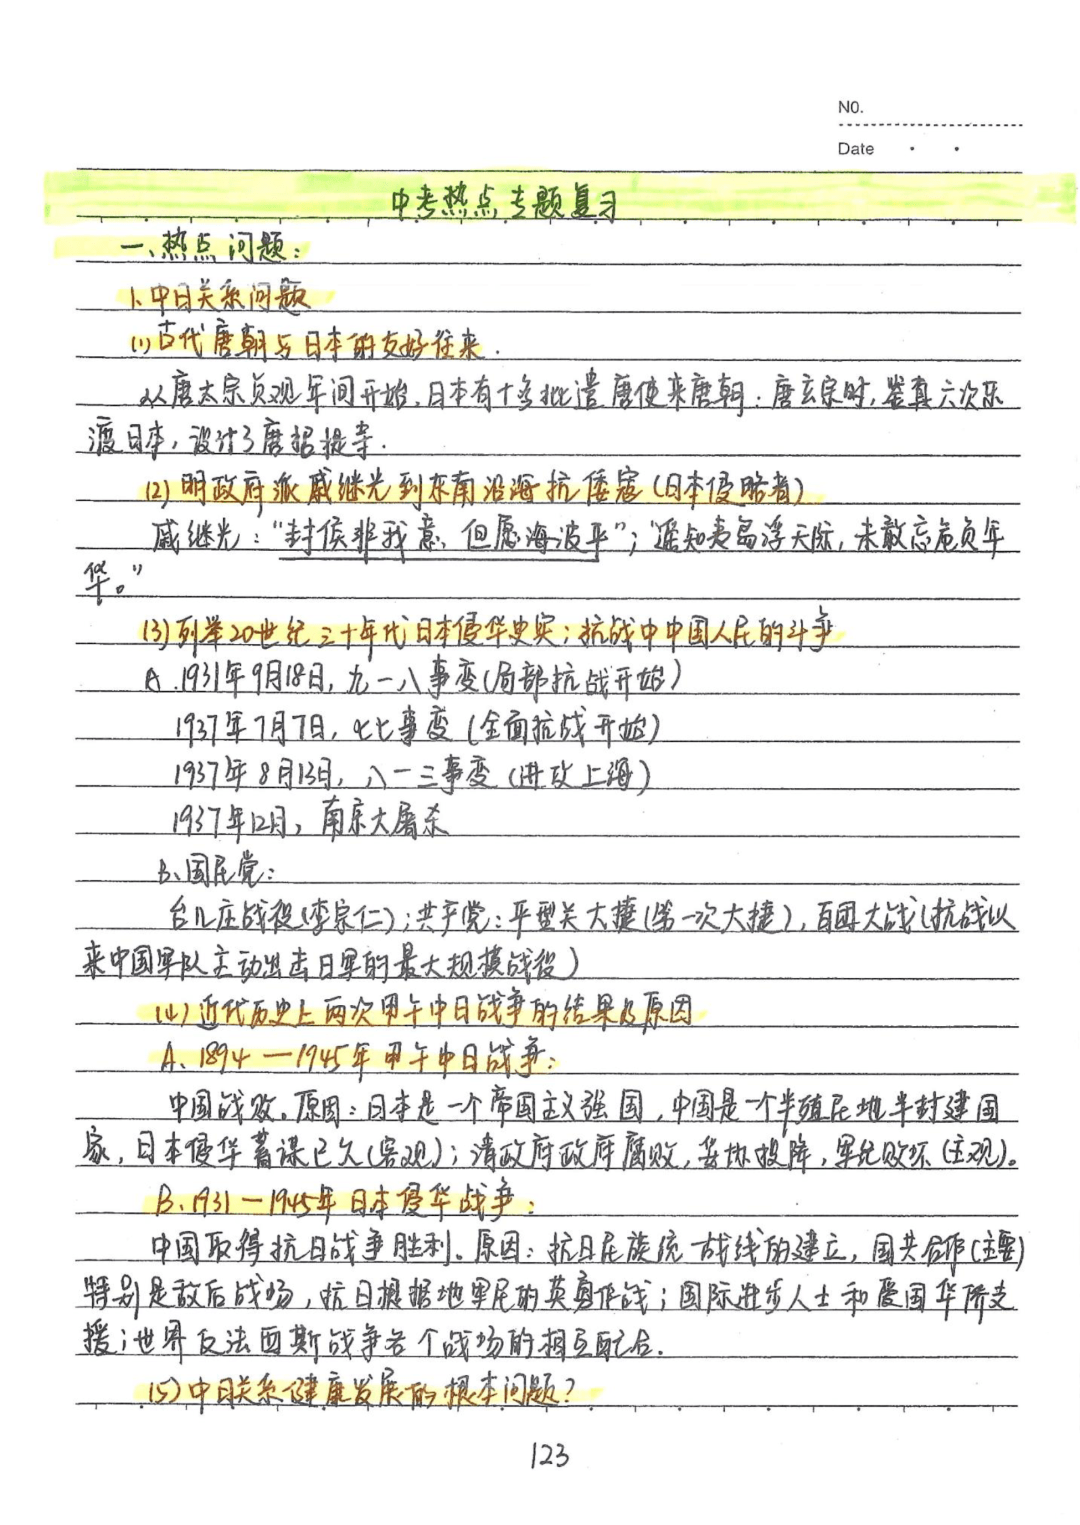 NO.
Date
中考热点专题复习
一、热点问题：
1、中日关系问题
(1)古代唐朝与日本的友好往来.
从唐太宗贞观年间开始,日本有十多批遣唐使来唐朝；唐玄宗时,鉴真六次东
渡日本,设计了唐招提寺.
(2)明政府派戚继光到东南沿海抗倭寇(日本侵略者)
戚继光："封侯非我意,但愿海波平"；"遥知夷岛浮天际,未敢忘危负年
华。"
(3)列举20世纪三十年代日本侵华史实；抗战中中国人民的斗争
A.1931年9月18日,九一八事变(局部抗战开始)
1937年7月7日,七七事变(全面抗战开始)
1937年8月13日,八一三事变(进攻上海)
1937年12月,南京大屠杀
B、国民党：
台儿庄战役(李宗仁)；共产党：平型关大捷(第一次大捷),百团大战(抗战以
来中国军队主动出击日军的最大规模战役)
(4)近代历史上两次甲午中日战争的结果及原因
A、1894—1945年甲午中日战争：
中国战败。原因：日本是一个帝国主义强国,中国是一个半殖民地半封建国
家,日本侵华蓄谋已久(客观)；清政府政府腐败,妥协投降,军纪败坏(主观)。
B、1931—1945年日本侵华战争：
中国取得抗日战争胜利。原因：抗日民族统一战线的建立,国共合作(主要)
特别是敌后战场,抗日根据地军民的英勇作战；国际进步人士和爱国华侨支
援；世界反法西斯战争各个战场的相互配合.
(5)中日关系健康发展的根本问题？
123